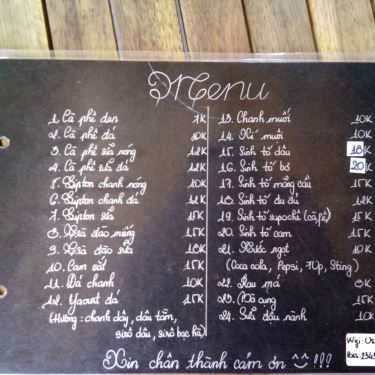 Menu
1. Cà phê đen 7K
2. Cà phê đá 10K
3. Cà phê sữa nóng 12K
4. Cà phê sữa đá 12K
5. Lipton chanh nóng 10K
6. Lipton chanh đá 12K
7. Lipton sữa 15K
8. Dừa dầm 15K
9. Dừa dầm sữa 18K
10. Cam vắt 15K
11. Đá chanh 10K
12. Yaourt đá 15K
(Hương: chanh dây, dâu tằm,
sirô dâu, sirô bạc hà)
13. Chanh muối 10K
14. Xí muội 10K
15. Sinh tố dâu 18K
16. Sinh tố bơ 20K
17. Sinh tố mãng cầu 15K
18. Sinh tố đu đủ 12K
19. Sinh tố sapochê (cà fê) 15K
20. Sinh tố cam 15K
21. Nước ngọt 10K
(Coca cola, Pepsi, 7Up, Sting)
22. Rau má 8K
23. 15K
24. Sữa đậu nành 10K
Xin chân thành cảm ơn !!!